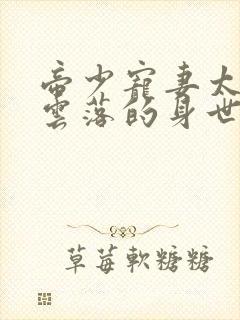 帝少寵妻太
雲落的身世
草莓軟糖糖